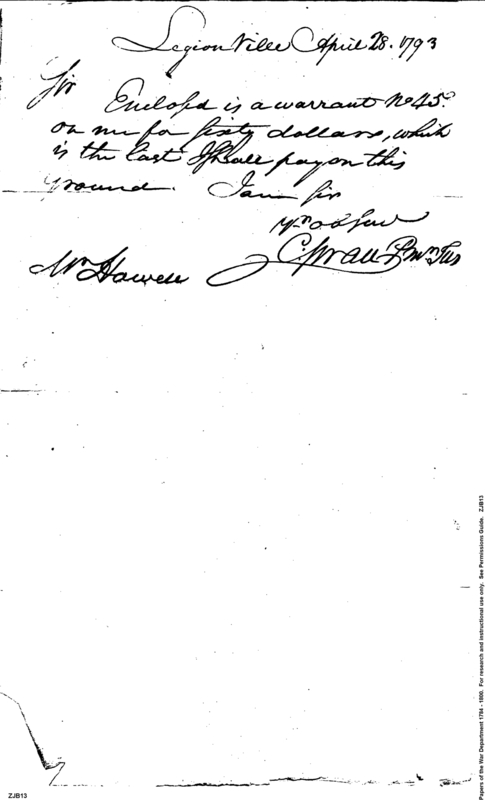 Legion Ville April 28. 1793
Sir
Enclosed is a warrant No 45.
on me for sixty dollars, which
is the last I shall pay on this
ground. I am Sir
Yr ob Serv
C Swan P Mr Tus
Mr Howell
Papers of the War Department 1784 - 1800. For research and instructional use only. See Permissions Guide. ZJB13
ZJB13